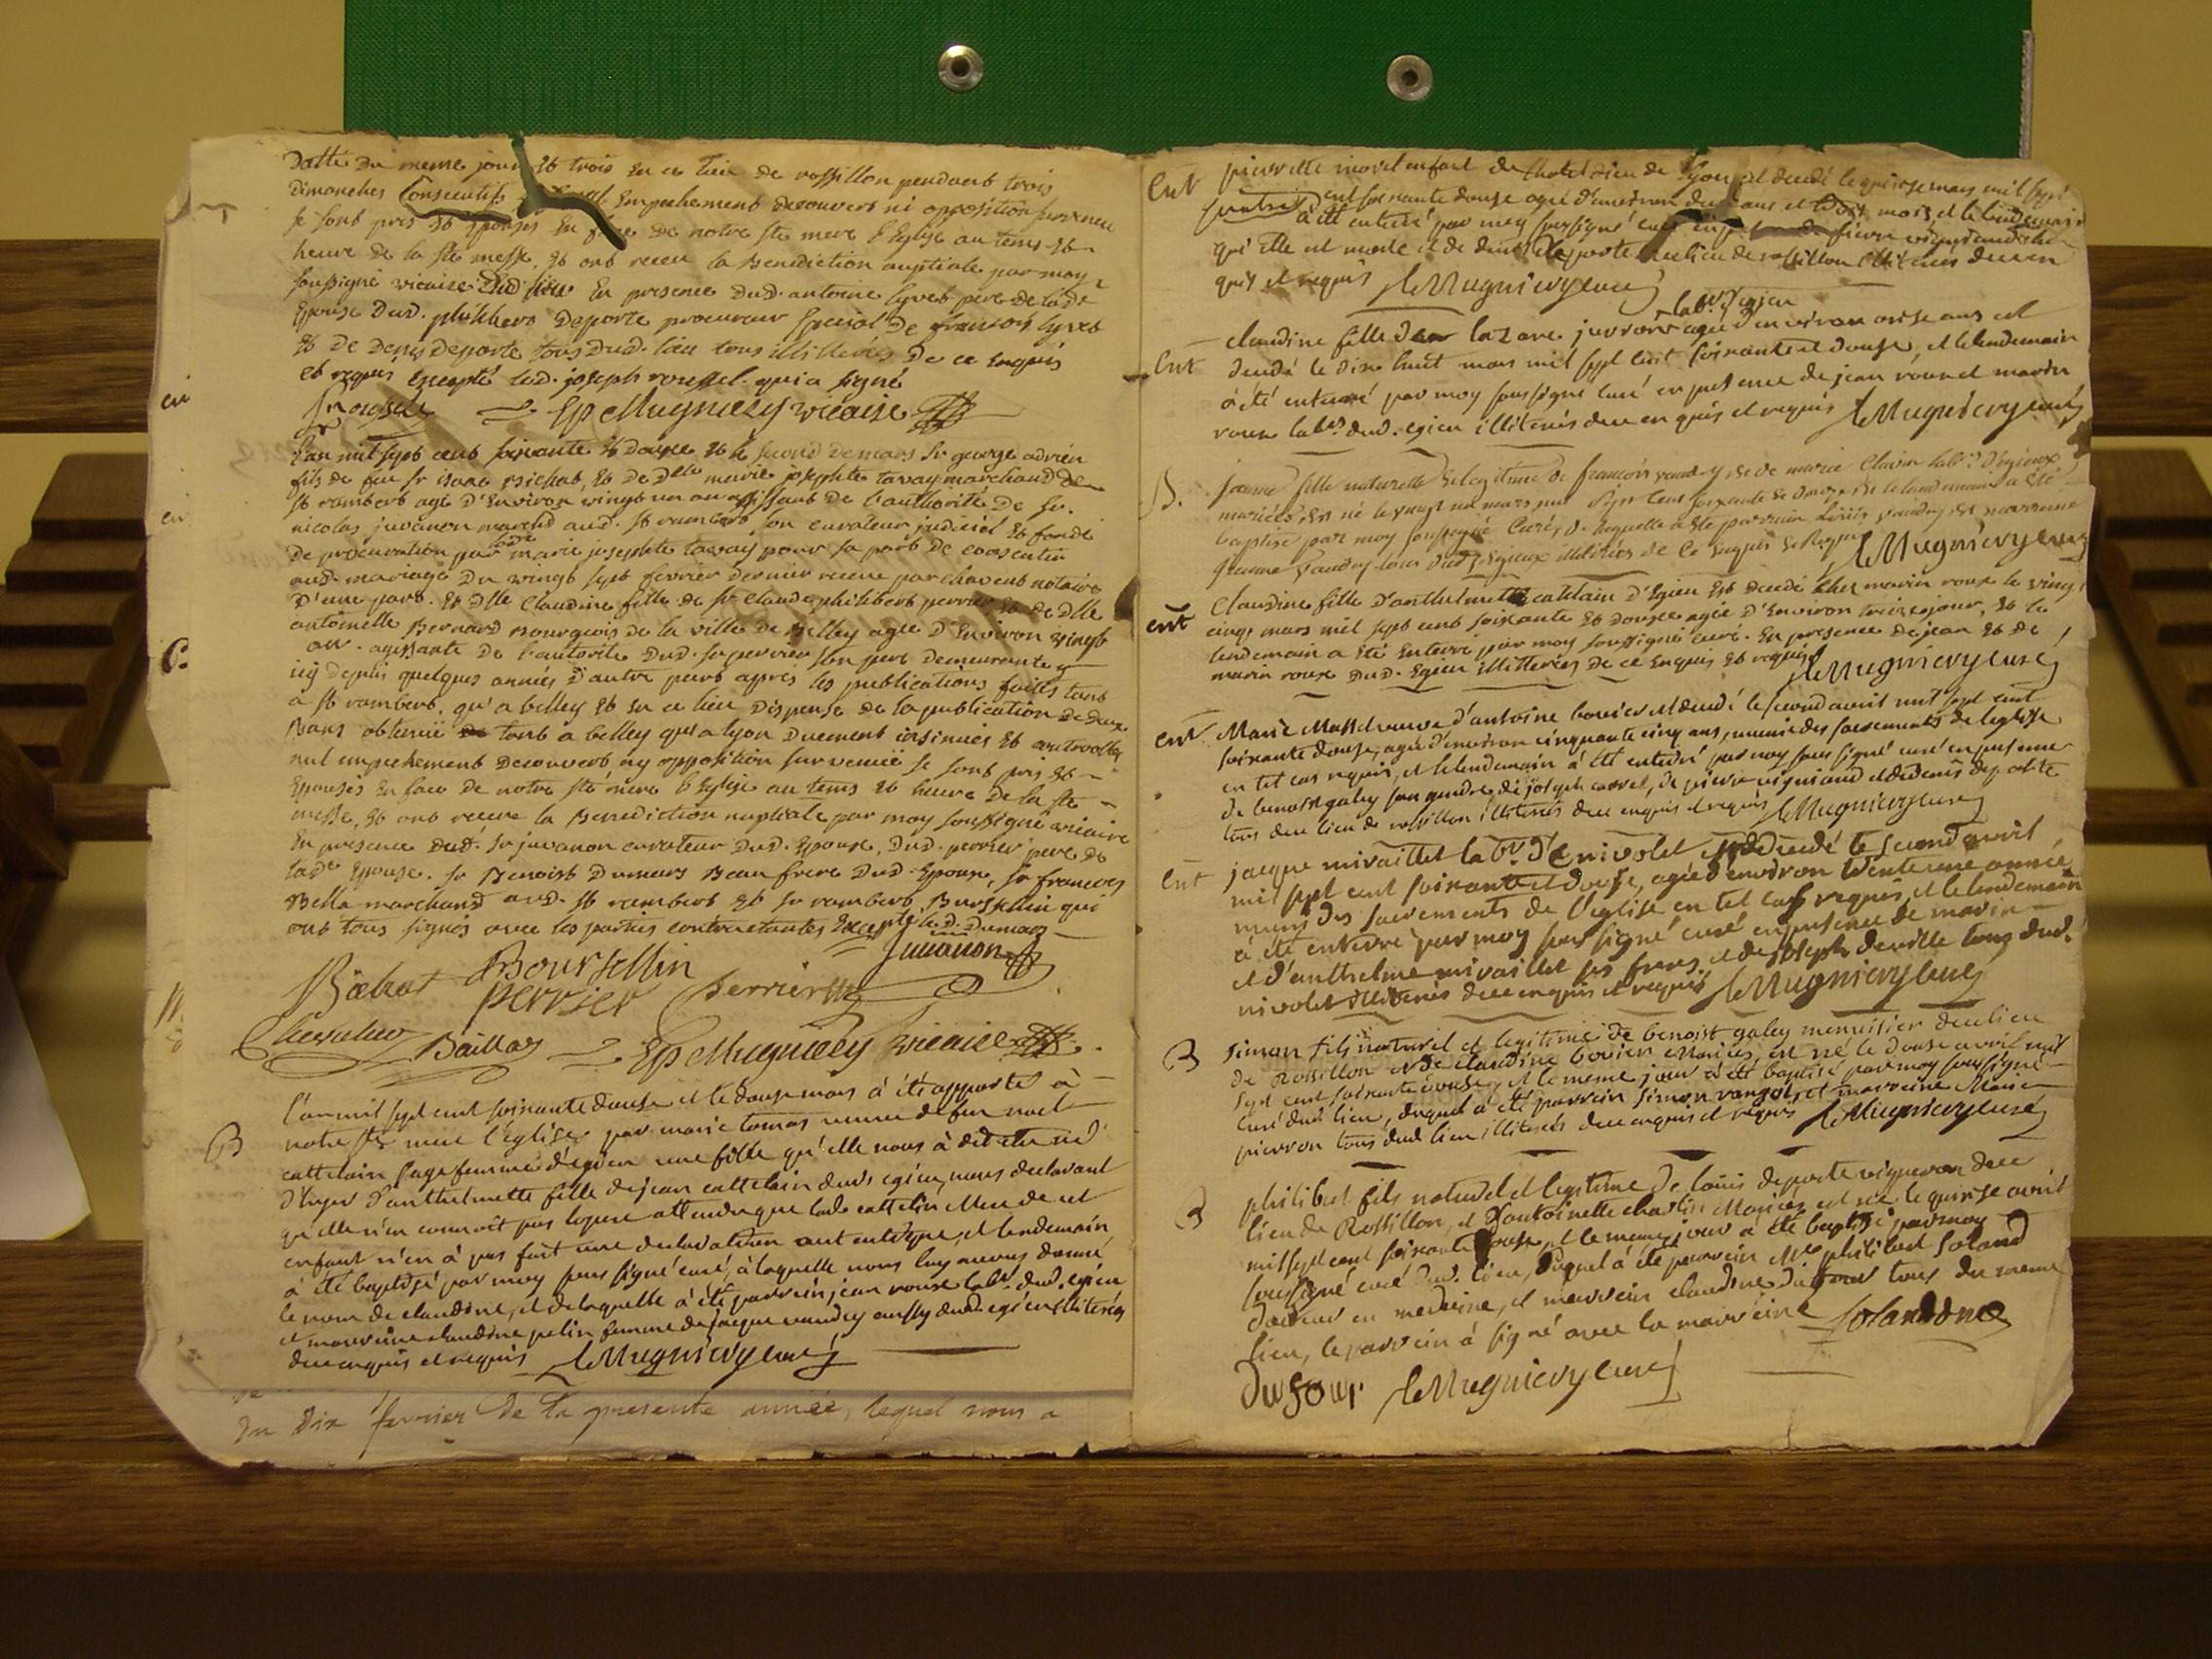 datté du meme jour et trois en ce lieu de rossillon pendant trois
dimanches Consecutifs empechement decouvert ni opposition survenue
se sont pris et épousés en face de notre ste mere l'Eglise au tems et
heure de la ste messe. et ont receu la Benediction nuptiale par moy
soussigné vicaire en presence dud. antoine lyvet pere de lade
Epouse dud. philibers deporte procureur special de francois lyvet
et de Denis deporte tous dud. lieu tous illitérés de ce enquis
et requis excepté led. joseph roussel qui a signé
Ep eMugniery vicaire
en
l'an mil sept cent soixante et douze et le second de mars Sr george adrien
fils de feu Sr isaac michat, et de Dlle marie josephte tavay marchand de
St rambert agé d'environ vingt un an agissant de l'authorité de Sr.
nicolas juvanon marchd aud. St rambert son curateur judiciel et fondé
de procuration par lade marie josephte tavay pour sa part de consentir
aud. mariage du vingt sept fevrier dernier receue par notaire
d'une part. et Dlle Claudine fille de Sr Claude philibert perrier et de Dlle
antoinette Bernard Bourgeois de la ville de Belley agée d'environ vingt
an. agissante de l'autorité dud. Sr perrier son pere demeurante
icy depuis quelques années d'autre part après les publications faites tant
a St rambert, qu'a belley et en ce lieu dispense de la publication de deux
Bans obtenüe tant a belley qu'a lyon duement insinuées et controollés
nul empechement decouvert ny opposition survenüe se sont pris et
épousés en face de notre ste mère l'Eglise au tems et heure de la ste
messe, et ont receue la Benediction nuptiale par moy soussigné vicaire
en presence dud. Sr juvanon curateur dud. Epoux, dud. perrier pere de
lade Epouse. Sr Benoist Dumars Beau frere dud. Epoux, Sr francois
Bella marchand aud. St rambert et Sr rambert Bursellin qui
ont tous signés avec les parties contractantes Excepté led. Dumars
Juvanon
Boursellin
perrier Perrier
Chevalier Baillas Ep eMugniery vicaire
B
l'an mil sept cent soixante douze et le douze mars à été apporté à
notre ste mere l'église par marie tomas veuve de feu noel
cattelain sage femme d'egieu une fille qu'elle nous à dit etre né
d'hyer d'anthelmette fille de jean cattelain dud. egieu, nous declarant
qu'elle n'en connoit pas le pere attendu que lade cattelin Mere de cet
enfant n'en à pas fait une declaration autentique, et lendemain
à été baptisé par moy sous signé curé, à laquelle nous luy avons donné
le nom de claudine, et de laquelle à été parrein jean roux labr. dud. egieu
et marreine claudine pelin femme de jaque vaudey aussy dud. egieu illiterés
de ce enquis et requis eMugniery curé
du dix fevrier de la presente année, lequel nous a
Ent
pierrette morel enfant de l'hotel dieu de Lyon est decedé le quinse mars mil sept
cent soixante douze agé d'environ deux ans et trois mois, et le lendemain
à été enterré par moy soussigné curé en presence de pierre vigniaud chez
qui elle est morte et de denis deporte du lieu de rossillon illiterés de ce en
quis et requis eMugniery curé
labr. d'egieu
Ent
claudine fille de lazare juvron agée d'environ onse ans est
decedé le dix huit mars mil sept cent soixante et douse, et le lendemain
à été enterré par moy soussigné curé en presence de jean roux et marin
roux labrs. dud. egieu illiterés de ce enquis et requis eMugniery curé
B.
jeanne fille naturelle et legitime de francois vaudey et de marie Clavin labr. d'egieux
mariés, est né le vingt un mars mil sept cent soixante et douze et le lendemain a été
baptisé par moy soussigné Curé, de laquelle a été parrain loüis vaudey et marraine
jeanne vaudey tous dud. Egieux illitérés de ce enquis et requis eMugniery curé
ent
Claudine fille d'anthelmette catelain d'Egieu est decedé chez marin roux le vingt
cinq mars mil sept cent soixante et douze agée d'environ treize jour, et le
lendemain a été enterré par moy soussigné curé. En presence de jean et de
marin roux dud. Egieu illitterés de ce enquis et requis eMugniery curé
ent
Marie Massel veuve d'antoine bovier et decedé le second avril mil sept cent
soixante douse, agée d'environ cinquante cinq ans, munie des sacrements de l'eglise
en tel cas requis, et le lendemain à été enterré par moy sous signé curé en presence
de benoist galey son gendre de joseph carrel, de pierre vigniaud et de denis deporte
tous du lieu de rossillon illiterés de ce enquis et requis eMugniery curé
Ent
jacque mivaillet labr. de nivolet est decedé le second avril
mil sept cent soixante et douse, agé d'environ trente une année
muni des sacrements de l'eglise en tel cas requis, et le lendemain
à été enterré par moy sous signé curé en presence de marin
et d'anthelme mivaillet ses freres, et de joseph deville tous dud.
nivolet illiterés de ce enquis et requis eMugniery curé
B
Simon fils naturel et legitime de benoist galey menuisier du lieu
de Rossillon et de claudine bovier Mariés, est né le douse avril mil
sept cent soixante douse, et le meme jour a été baptisé par moy soussigné
curé dud. lieu, duquel a été parrein simon et marreine Marie
pierron tous dud. lieu illiterés de ce enquis et requis eMugniery curé
B
philibert fils naturel et legitime de louis deporte vigneron du
lieu de Rossillon, et d'antoinette charlin Mariés est né le quinse avril
mil sept cent soixante douse et le meme jour a été baptisé par moy
soussigné curé dud. lieu, duquel à été parrein Mre philibert Soland
docteur en medecine, et marrein claudine dufour tous du meme
lieu, le parrein à signé avec la marreine Soland
dufour eMugniery curé